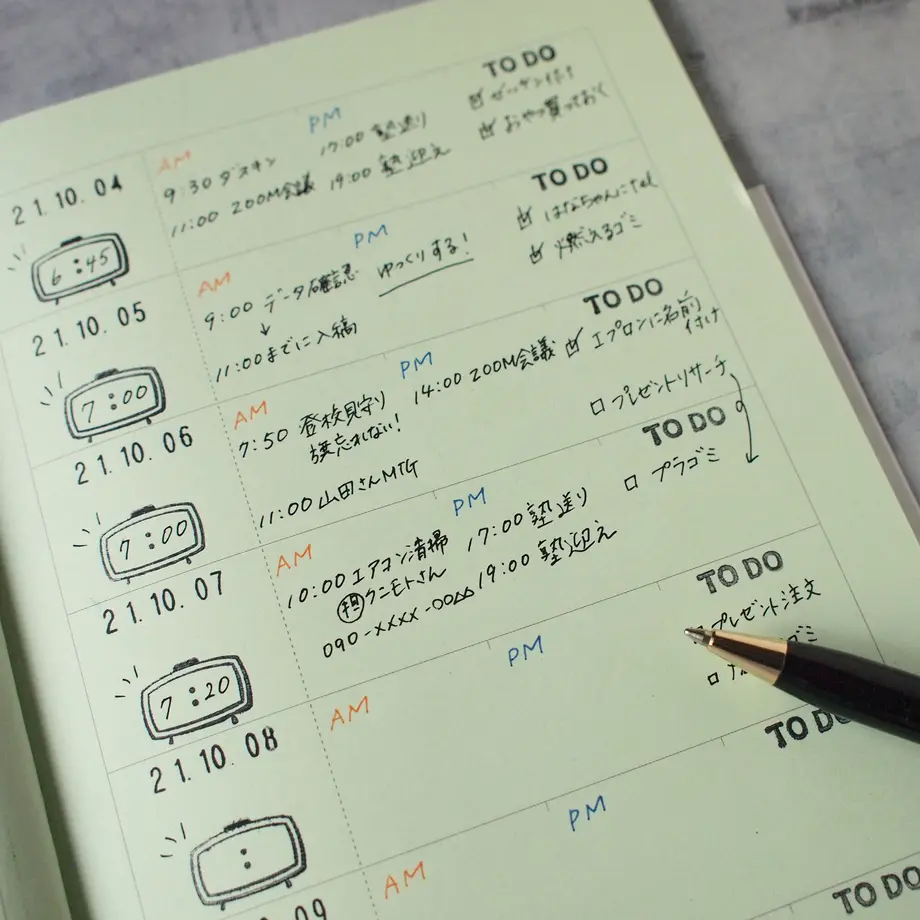 21.10.04
6:45
AM
9:30 ダスキン
11:00 ZOOM会議
PM
17:00 塾送り
19:00 塾迎え
TO DO
☑ ゼッケン付け
☑ おやつ買っておく
21.10.05
7:00
AM
9:00 データ確認
↓
11:00までに入稿
PM
ゆっくりする!
TO DO
☑ はなちゃんにtel
☑ 燃えるゴミ
21.10.06
7:00
AM
7:50 登校見守り
旗忘れない!
11:00 山田さんMTG
PM
14:00 ZOOM会議
TO DO
☑ エプロンに名前
付け
□ プレゼントリサーチ
21.10.07
7:20
AM
10:00 エアコン清掃
㊞担 クニモトさん
090-XXXX-00△△
PM
17:00 塾送り
19:00 塾迎え
TO DO
□ プラゴミ
21.10.08
:
AM
PM
TO DO
プレゼント注文
□ ゴミ
09
AM
PM
TO DO
TO DO